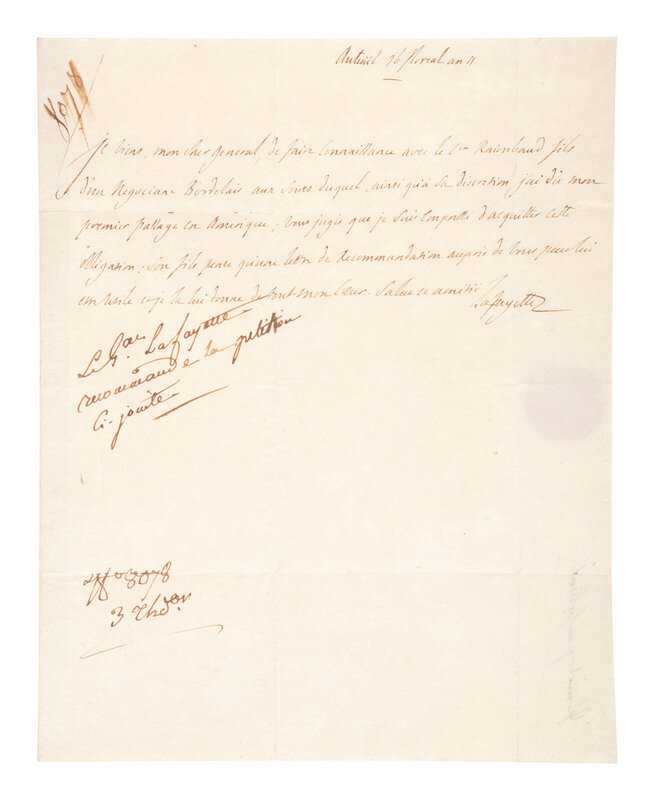 Auteuil 16 floreal an 11
8078
Je viens, mon cher general, de faire connaissance avec le Cen Raimbaud fils
d'un Negociant Bordelais aux soins duquel, ainsi qu'à sa discretion j'ai du mon
premier passage en Amerique; Vous jugés que je suis empressé d'acquitter cette
obligation. Son fils pense qu'une lettre de Recommandation auprès de Vous peut lui
etre utile et je la lui donne de tout mon Cœur. Salut et amitié
Lafayette
Le Gal Lafayette
recommande la petition
Ci-jointe
No 8078
3